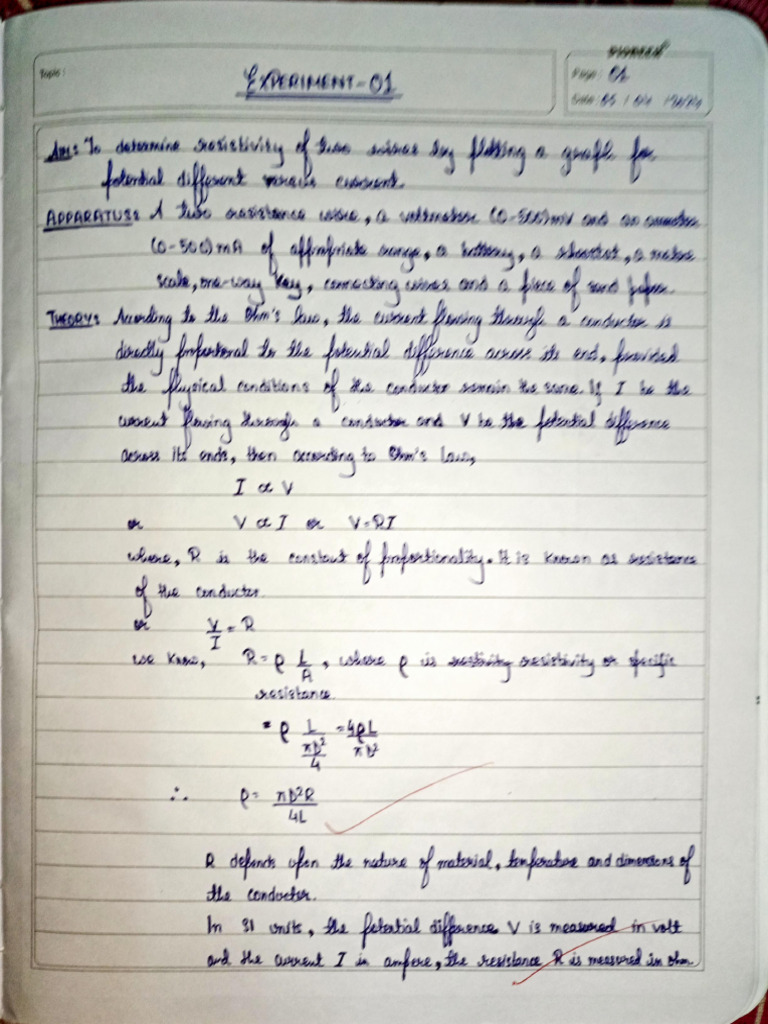 Topic:
EXPERIMENT-01
Page: 01
Date: 05 / 04 /
AIM: To determine resistivity of two wires by plotting a graph for
potential different versus current.
APPARATUS: A two resistance wire, a voltmeter (0-500)mV and an ammeter
(0-500)mA of appropriate range, a battery, a rheostat, a metre
scale, one-way key, connecting wires and a piece of sand paper.
THEORY: According to the Ohm's law, the current flowing through a conductor is
directly proportional to the potential difference across its end, provided
the physical conditions of the conductor remain the same. If I be the
current flowing through a conductor and V be the potential difference
across its ends, then according to Ohm's law,
I ∝ V
or V ∝ I or V=RI
where, R is the constant of proportionality. It is known as resistance
of the conductor.
or V/I = R
we know, R = ρ L/A, where ρ is resistivity or specific
resistance.
= ρ L/(πD²/4) = 4ρL/πD²
∴ ρ = πD²R/4L
R depends upon the nature of material, temperature and dimensions of
the conductor.
In SI units, the potential difference V is measured in volt
and the current I in ampere, the resistance R is measured in ohm.